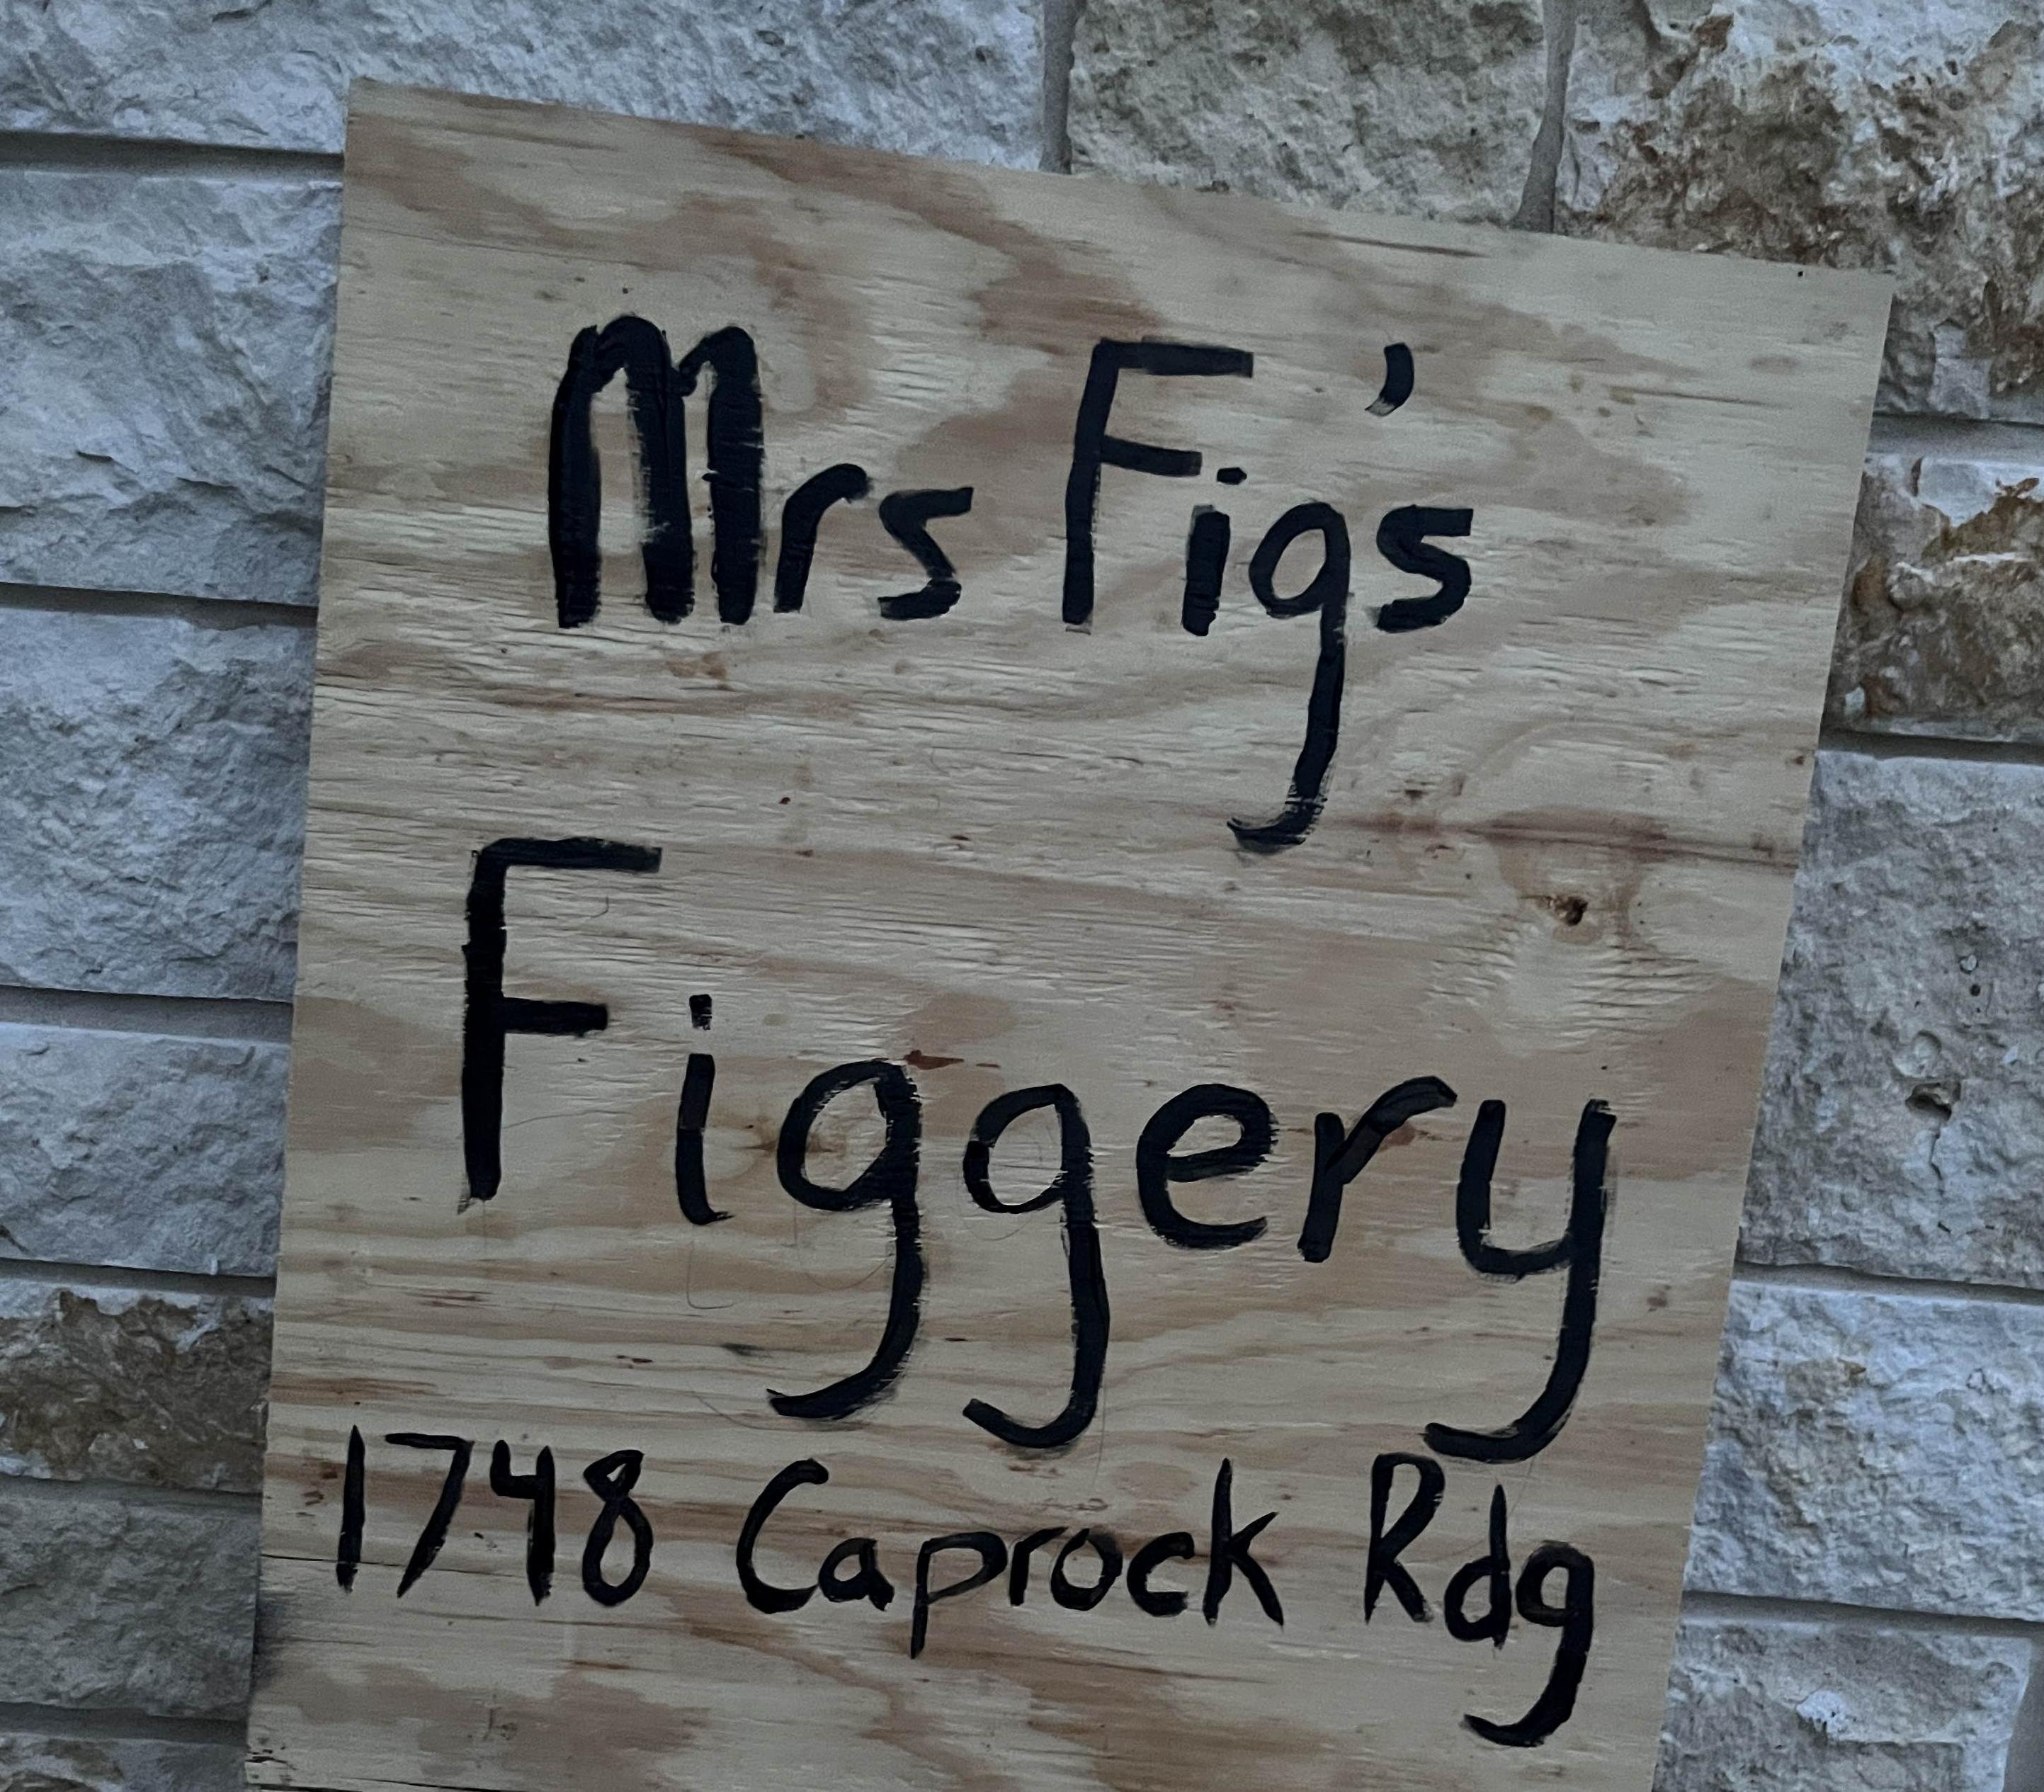 Mrs Fig's
Figgery
1748 Caprock Rdg